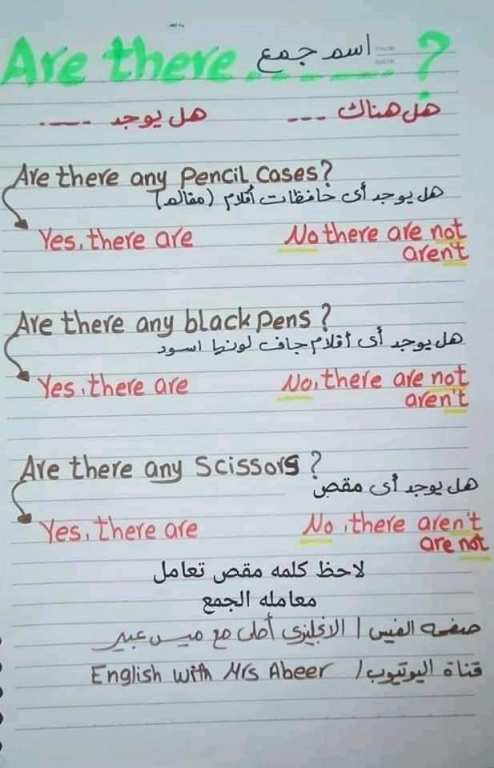 Are there ------- ?
اسم جمع
هل هناك --- هل يوجد ----
Are there any pencil cases?
هل يوجد أى حافظات أقلام (مقالم)
Yes, there are No there are not
aren't
Are there any black pens ?
هل يوجد أى أقلام جاف لونها اسود
Yes, there are No, there are not
aren't
Are there any Scissors ?
هل يوجد أى مقص
Yes, there are No, there aren't
are not
لاحظ كلمه مقص تعامل
معامله الجمع
صفحه الفيس / الانجليزى أحلى مع ميس عبير
قناة اليوتيوب / English with Mrs Abeer